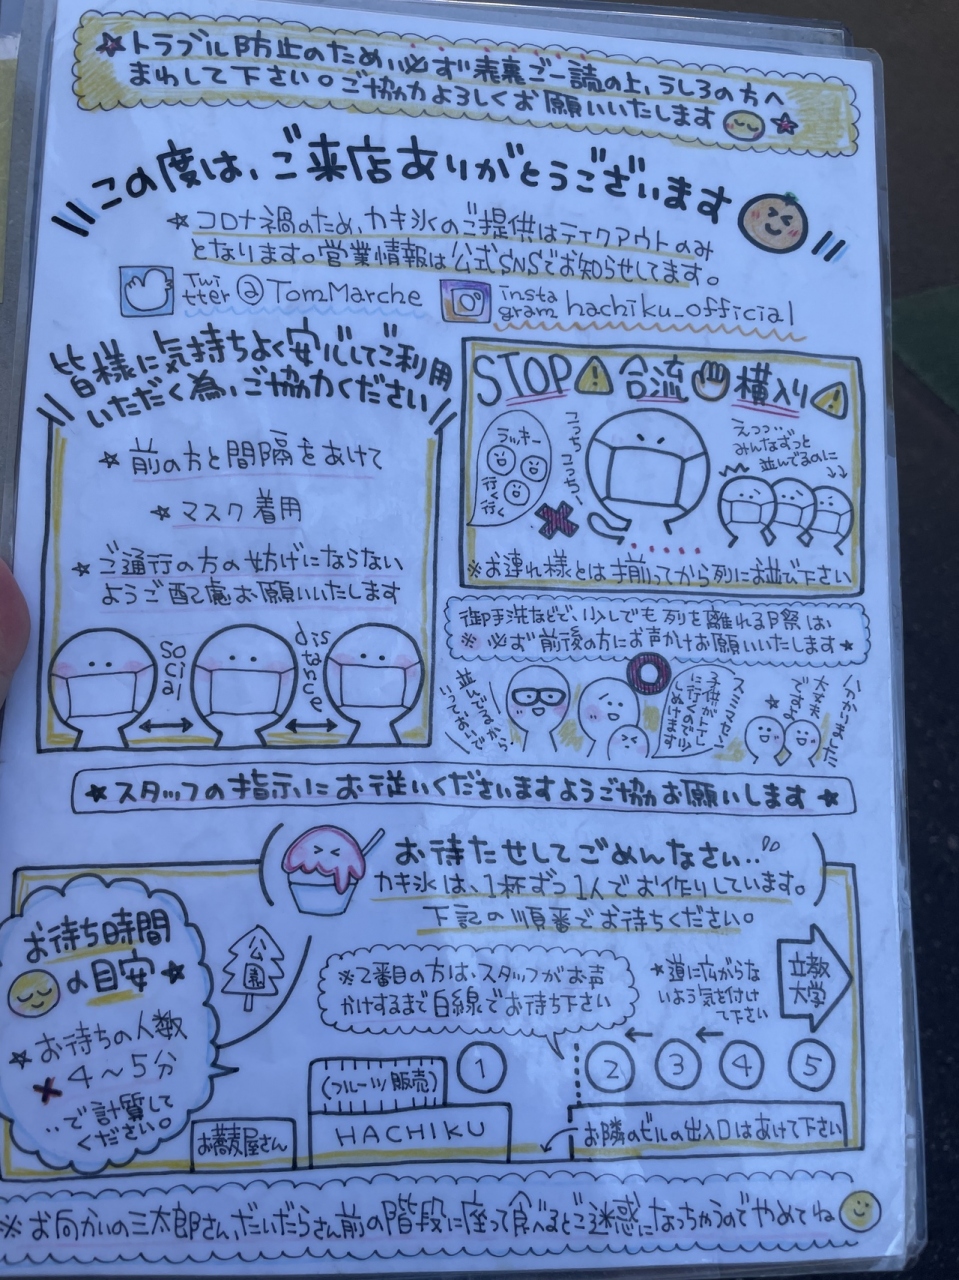 ☆トラブル防止のため必ず表裏ご一読の上、うしろの方へ
まわして下さい。ご協力よろしくお願いいたします
この度は、ご来店ありがとうございます
☆コロナ禍のため、カキ氷のご提供はテイクアウトのみ
となります。営業情報は公式SNSでお知らせしてます。
Twitter @TomMarche
instagram hachiku_official
皆様に気持ちよく安心してご利用
いただく為、ご協力ください
☆前の方と間隔をあけて
☆マスク着用
☆ご通行の方の妨げにならない
ようご配慮お願いいたします
social
distance
STOP 合流 横入り
ラッキー
行く行く
こっちこっち〜
えっっ‥
みんなずっと
並んでるのに
※お連れ様とは揃ってから列にお並び下さい
御手洗などで、少しでも列を離れる際は
※必ず前後の方にお声かけお願いいたします★
並んでるから、
いっておいで
スミマセン
子供がトイレ
に行くので少し
ぬけます
大丈夫
ですよ
★スタッフの指示にお従いくださいますようご協力お願いします★
お待たせしてごめんなさい‥
カキ氷は、1杯ずつ1人でお作りしています。
下記の順番でお待ちください。
お待ち時間
の目安★
☆お待ちの人数
×4〜5分
‥で計算して
ください。
公園
※2番目の方は、スタッフがお声
かけするまで白線でお待ち下さい
★道に広がらな
いよう気を付け
て下さい
立教
大学
① ② ③ ④ ⑤
(フルーツ販売)
HACHIKU
お蕎麦屋さん
お隣のビルの出入口はあけて下さい
※お向かいの三太郎さん、だいだらさん前の階段に座って食べるとご迷惑になっちゃうのでやめてね